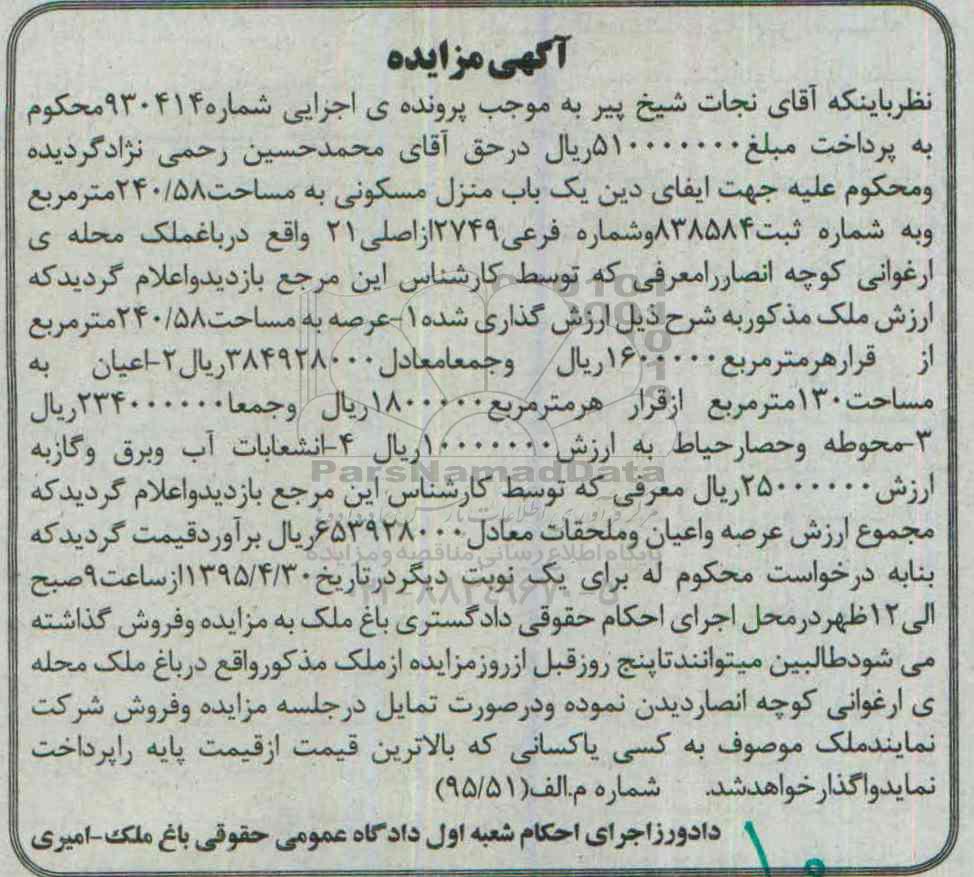 آگهی مزایده
نظرباینکه آقای نجات شیخ پیر به موجب پرونده ی اجرایی شماره۹۳۰۴۱۴محکوم
به پرداخت مبلغ۵۱۰۰۰۰۰۰۰ریال درحق آقای محمدحسین رحمی نژادگردیده
ومحکوم علیه جهت ایفای دین یک باب منزل مسکونی به مساحت۲۴۰/۵۸مترمربع
وبه شماره ثبت۸۳۸۵۸۴وشماره فرعی۲۷۴۹ازاصلی۲۱ واقع درباغملک محله ی
ارغوانی کوچه انصاررامعرفی که توسط کارشناس این مرجع بازدیدواعلام گردیدکه
ارزش ملک مذکوربه شرح ذیل ارزش گذاری شده۱-عرصه به مساحت۲۴۰/۵۸مترمربع
از قرارهرمترمربع۱۶۰۰۰۰۰ریال وجمعامعادل۳۸۴۹۲۸۰۰۰ریال۲-اعیان به
مساحت۱۳۰مترمربع ازقرار هرمترمربع۱۸۰۰۰۰۰ریال وجمعا۲۳۴۰۰۰۰۰۰ریال
۳-محوطه وحصارحیاط به ارزش۱۰۰۰۰۰۰۰ریال ۴-انشعابات آب وبرق وگازبه
ParsNamadData
ارزش۲۵۰۰۰۰۰۰ریال معرفی که توسط کارشناس این مرجع بازدیدواعلام گردیدکه
مجموع ارزش عرصه واعیان وملحقات معادل۶۵۳۹۲۸۰۰۰ریال برآوردقیمت گردیدکه
پایگاه اطلاع رسانی مناقصه و مزایده
بنابه درخواست محکوم له برای یک نوبت دیگردرتاریخ۱۳۹۵/۴/۳۰ازساعت۹صبح
الی۱۲ظهردرمحل اجرای احکام حقوقی دادگستری باغ ملک به مزایده وفروش گذاشته
می شودطالبین میتوانندتاپنج روزقبل ازروزمزایده ازملک مذکورواقع درباغ ملک محله
ی ارغوانی کوچه انصاردیدن نموده ودرصورت تمایل درجلسه مزایده وفروش شرکت
نمایندملک موصوف به کسی یاکسانی که بالاترین قیمت ازقیمت پایه راپرداخت
نمایدواگذارخواهدشد. شماره م.الف(۹۵/۵۱)
دادورزاجرای احکام شعبه اول دادگاه عمومی حقوقی باغ ملک-امیری